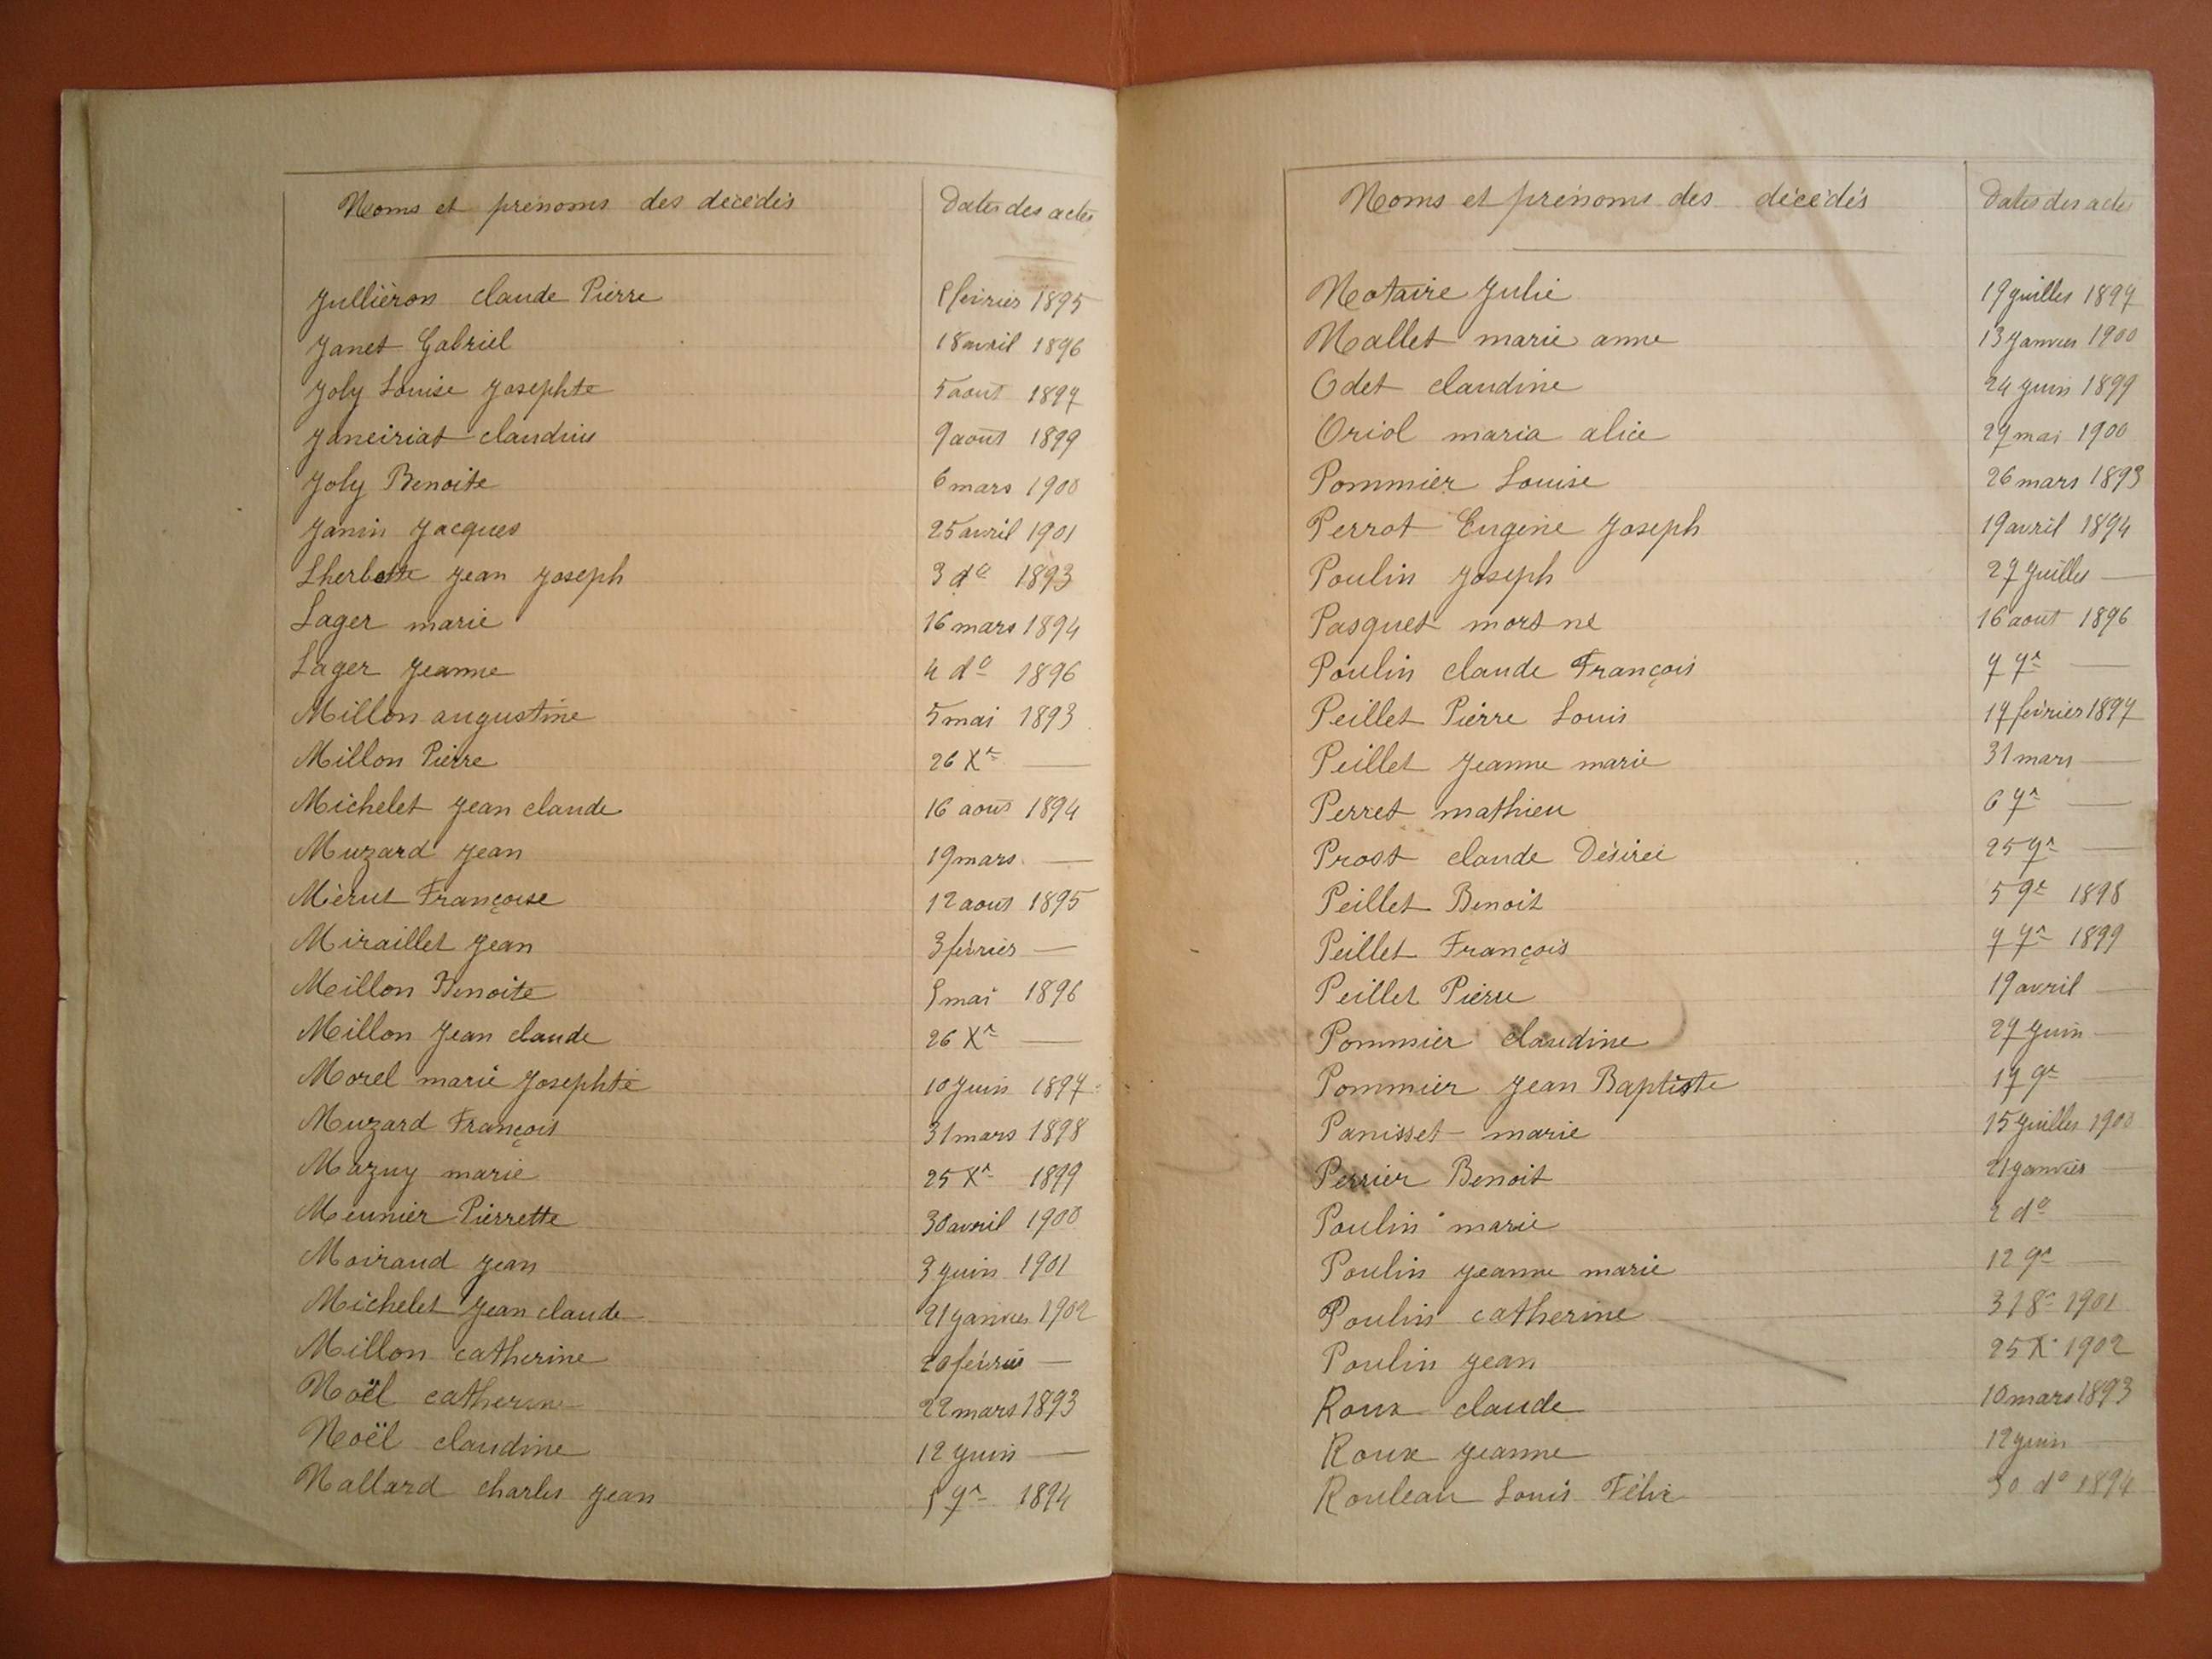 Noms et prénoms des décédés Dates des actes
Jullièron claude Pierre 1895
Janet Gabriel 18 avril 1896
Joly Louise Josephte 5 août 1897
claudius 9 août 1899
Joly Benoite 6 mars 1900
Janin Jacques 25 avril 1901
Lherbette Jean Joseph 3 do 1893
Lager marie 16 mars 1894
Lager Jeanne 4 do 1896
Millon augustine 5 mai 1893
Millon Pierre 26 Xre —
Michelet Jean claude 16 aout 1894
Muzard Jean 19 mars —
Mérut Françoise 12 aout 1895
Miraillet Jean 3 février —
Millon Benoite mai 1896
Millon Jean claude 26 Xre —
Morel marie Josephte 10 Juin 1897
Muzard François 31 mars 1898
Mazuy marie 25 Xre 1899
Meunier Pierrette 30 avril 1900
Moiraud Jean 3 Juin 1901
Michelet Jean claude 21 Janvier 1902
Millon catherine 20 février —
Noël catherine 22 mars 1893
Noël claudine 12 Juin —
Nallard charles Jean 7re 1894
Noms et prénoms des décédés Dates des actes
Notaire Julie 19 Juillet 1897
Nallet marie anne 13 Janvier 1900
Odet claudine 24 Juin 1899
Oriol maria alice 27 mai 1900
Pommier Louise 26 mars 1893
Perrot Eugène Joseph 19 avril 1894
Poulin Joseph 27 Juillet —
Pasquet mort né 16 aout 1896
Poulin claude François 7 7re —
Peillet Pierre Louis 17 février 1897
Peillet Jeanne marie 31 mars —
Perret mathieu 6 7re —
Prost claude Désirée 25 9re —
Peillet Benoit 5 9re 1898
Peillet François 7 7re 1899
Peillet Pierre 19 avril —
Pommier claudine 27 Juin —
Pommier Jean Baptiste 17 9re
Panisset marie 15 Juillet 1900
Perrier Benoit 21 Janvier —
Poulin marie 2 do —
Poulin Jeanne marie 12 9re —
Poulin catherine 31 8re 1901
Poulin Jean 25 Xre 1902
Roux claude 10 mars 1893
Roux Jeanne 12 Juin —
Rouleau Louis Félix 30 do 1894